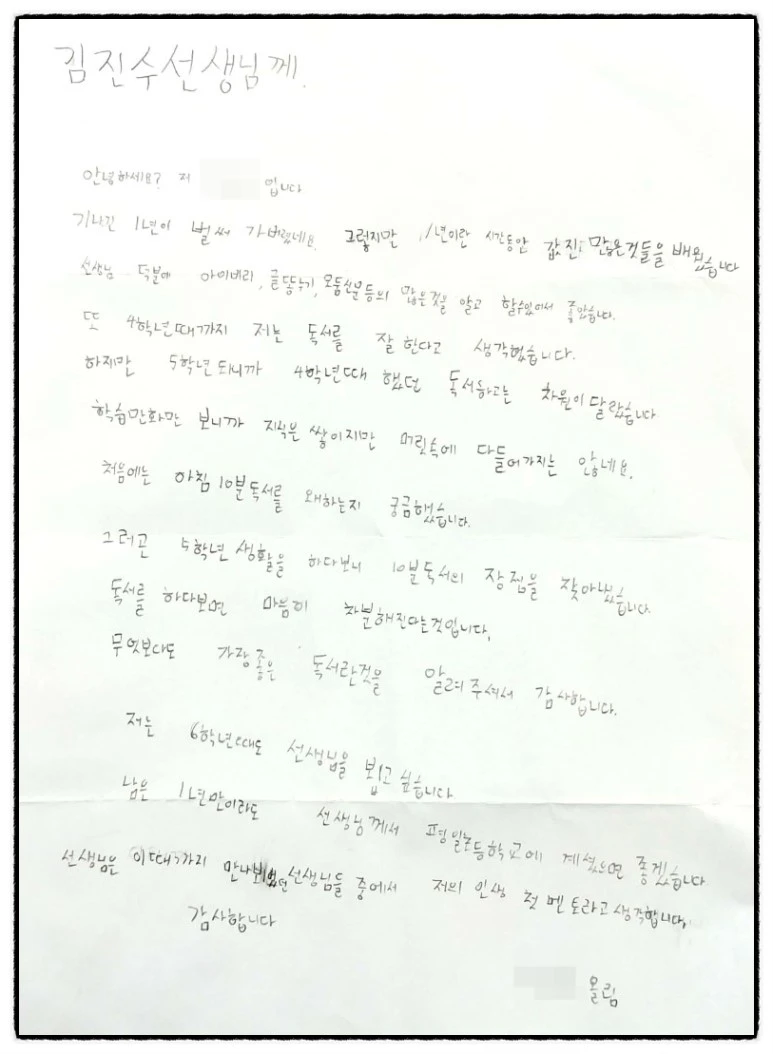 김진수선생님께.
안녕하세요? 저 입니다
기나긴 1년이 벌써 가버렸네요. 그렇지만 1년이란 시간동안 값진 많은것들을 배웠습니다
선생님 덕분에 아이베리, 글똥누기, 모둠신문등의 많은것을 알고 할수있어서 좋았습니다.
또 4학년때까지 저는 독서를 잘 한다고 생각했습니다.
하지만 5학년되니까 4학년때 했던 독서하고는 차원이 달랐습니다
학습만화만 보니까 지식은 쌓이지만 머릿속에 다들어가지는 안네요.
처음에는 아침 10분독서를 왜하는지 궁금했습니다.
그러곤 5학년 생활을 하다보니 10분독서의 장점을 찾아냈습니다
독서를 하다보면 마음이 차분해진다는것입니다.
무엇보다도 가장좋은 독서란것을 알려주셔서 감사합니다.
저는 6학년때도 선생님을 뵙고 싶습니다
남은 1년만이라도 선생님께서 평일초등학교에 계셨으면 좋겠습니다
선생님은 이때까지 만나 선생님들 중에서 저의 인생 첫 멘토라고생각합니다.
감사합니다
올림